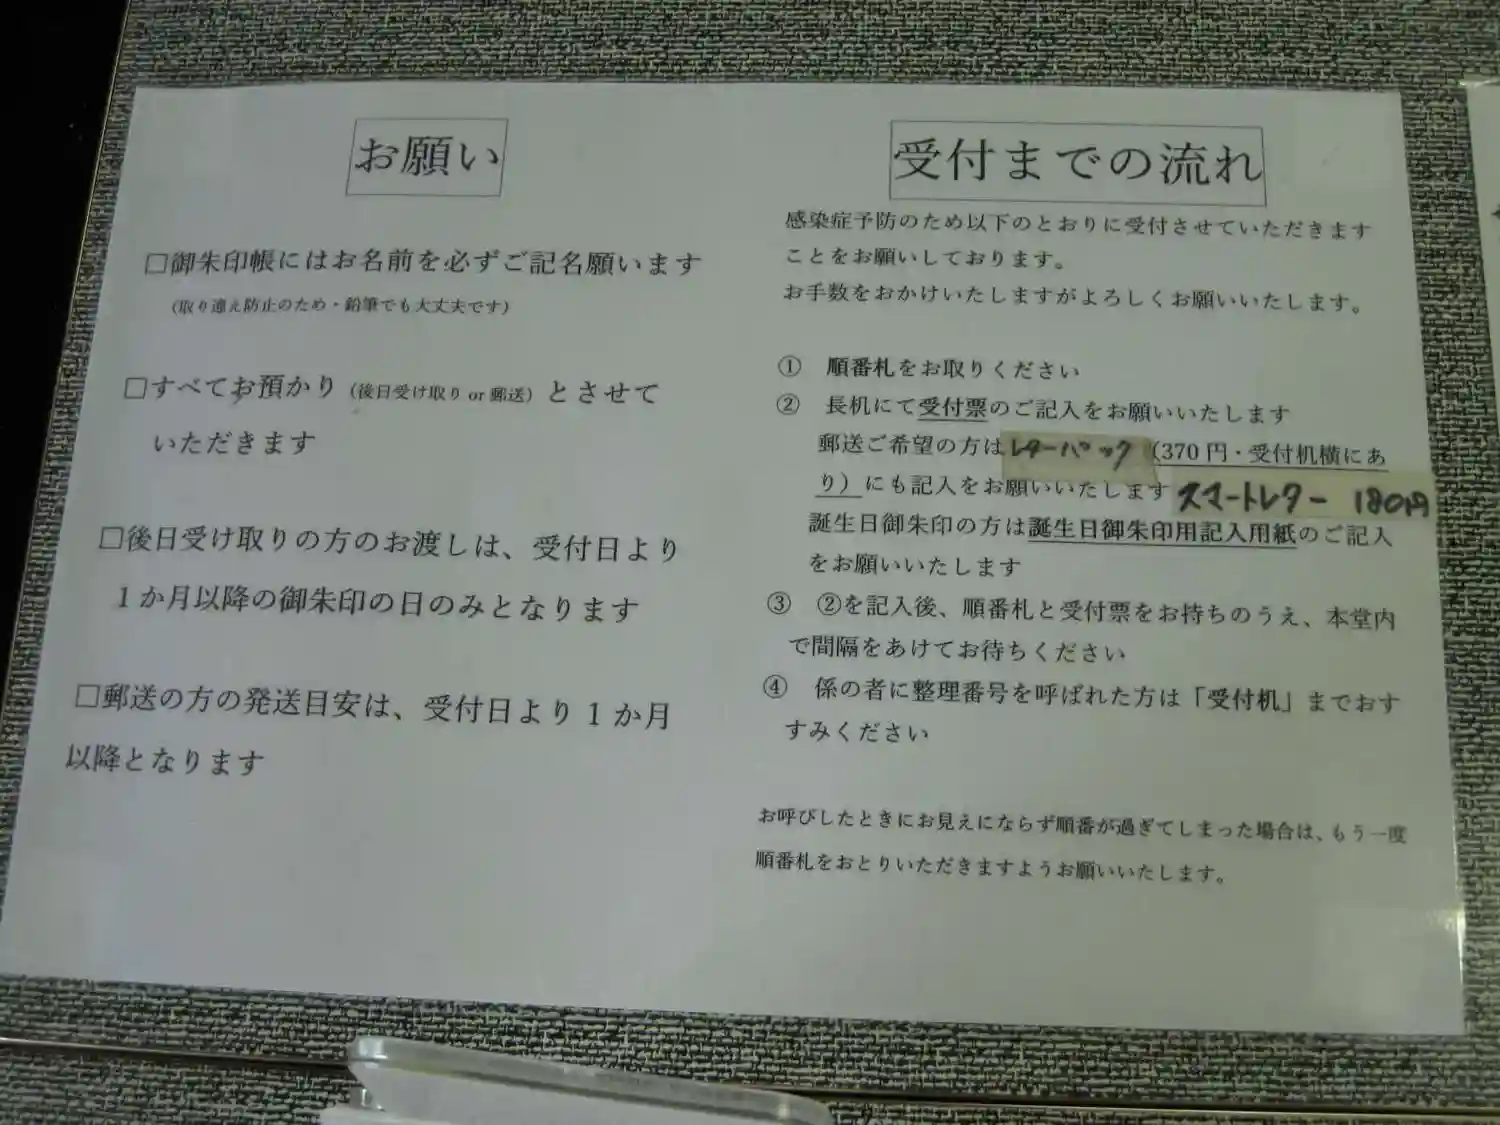 お願い
□御朱印帳にはお名前を必ずご記名願います
（取り違え防止のため・鉛筆でも大丈夫です）
□すべてお預かり（後日受け取り or 郵送）とさせて
いただきます
□後日受け取りの方のお渡しは、受付日より
１か月以降の御朱印の日のみとなります
□郵送の方の発送目安は、受付日より１か月
以降となります
受付までの流れ
感染症予防のため以下のとおりに受付させていただきます
ことをお願いしております。
お手数をおかけいたしますがよろしくお願いいたします。
① 順番札をお取りください
② 長机にて受付票のご記入をお願いいたします
郵送ご希望の方はレターパック（370 円・受付机横にあ
り）にも記入をお願いいたします スマートレター 180円
誕生日御朱印の方は誕生日御朱印用記入用紙のご記入
をお願いいたします
③ ②を記入後、順番札と受付票をお持ちのうえ、本堂内
で間隔をあけてお待ちください
④ 係の者に整理番号を呼ばれた方は「受付机」までおす
すみください
お呼びしたときにお見えにならず順番が過ぎてしまった場合は、もう一度
順番札をおとりいただきますようお願いいたします。